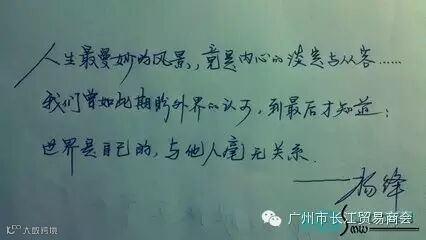 人生最曼妙的风景，竟是内心的淡定与从容……
我们曾如此期盼外界的认可，到最后才知道：
世界是自己的，与他人毫无关系．
——杨绛
大数跨境
广州市长江贸易商会